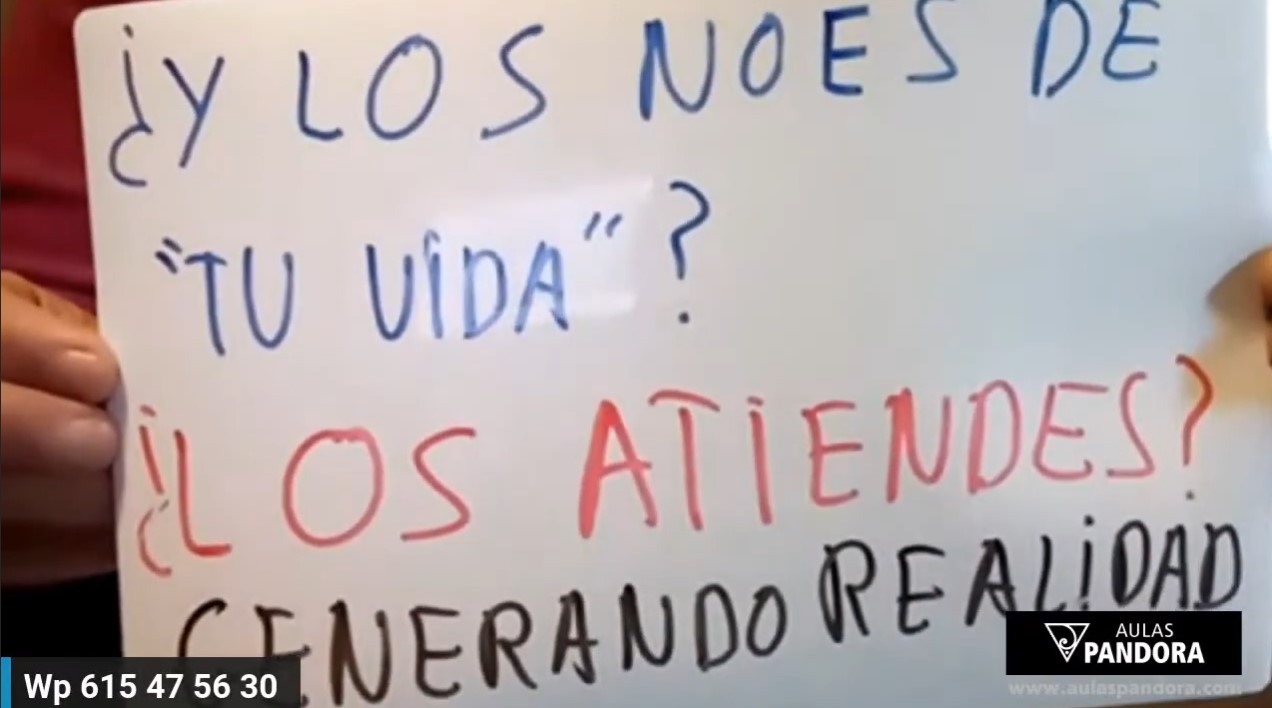 ¿Y LOS NOES DE
"TU VIDA"?
¿LOS ATIENDES?
GENERANDO REALIDAD
AULAS
PANDORA
Wp 615 47 56 30
www.aulaspandora.com